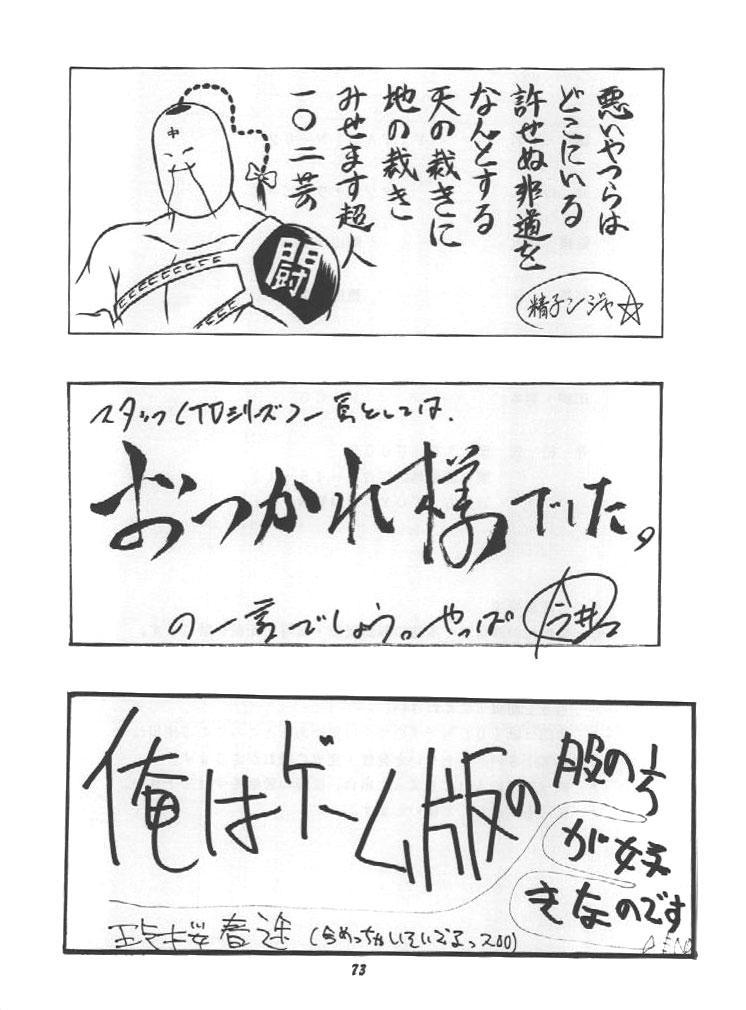 悪いやつらは
どこにいる
許せぬ非道を
なんとする
天の裁きに
地の裁き
みせます超人
一〇二芸
中
闘
精子ンジャ☆
スタッフ(TDシリーズ)一員としては、
おつかれ様でした。
の一言でしょう。やっぱ
今井
俺はゲーム版の
股の方
が好
きなのです
桜春途(今めっちゃいそいでるっス00)
73